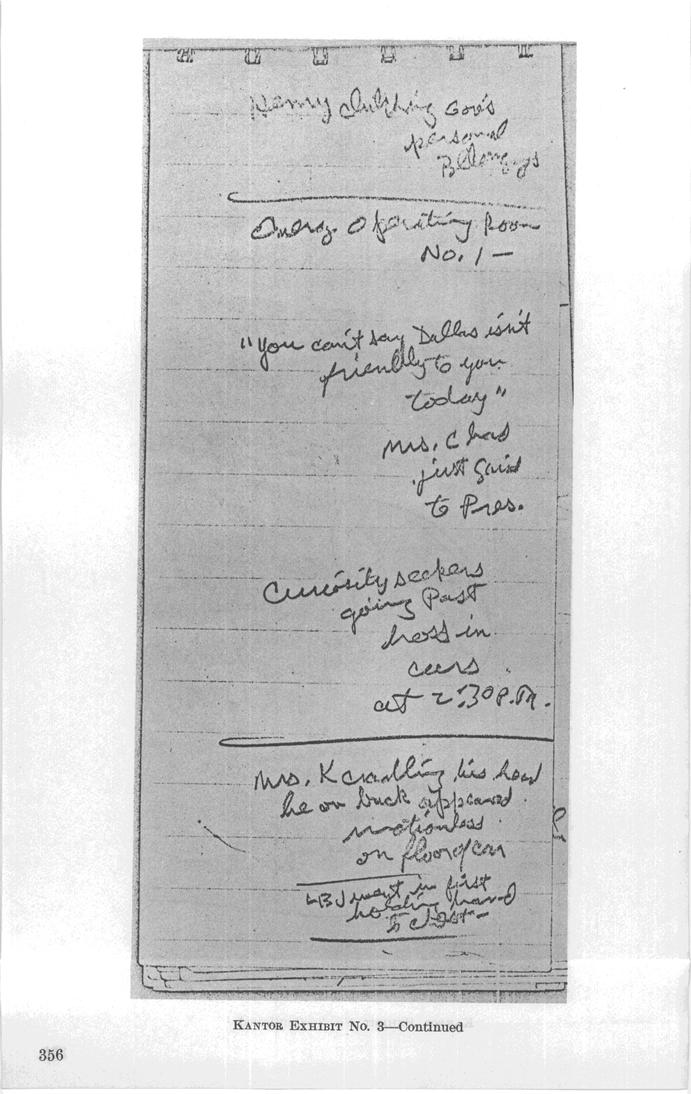 Henry clutching Gov's
personal
Belongings
Emerg. Operating Room
No. 1 —
"You can't say Dallas isn't
friendly to you
today"
Mrs. C had
just said
to Pres.
Curiosity seekers
going Past
hoss in
cars
at 2:30 P.M.
Mrs. K cradling his head
he on back appeared
motionless
on floor of car
LBJ went in first
holding hand
to chest —
KANTOR EXHIBIT No. 3—Continued
356